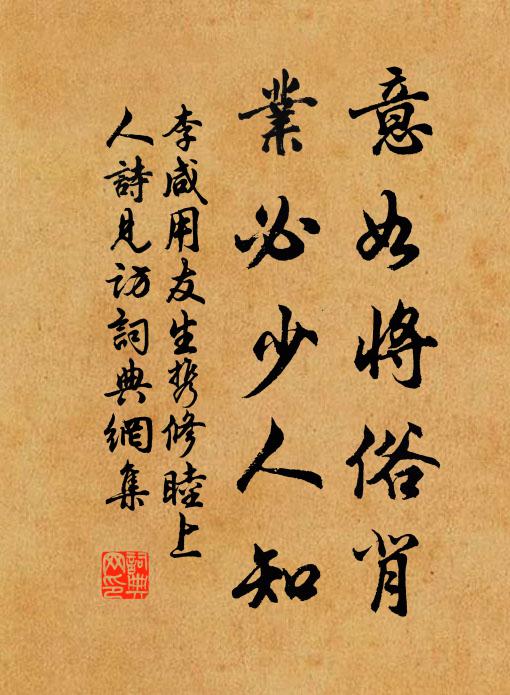 意如將俗肖
業必少人知
李咸用友生攜修睦上
人詩見訪詞典網集
詞典
网印